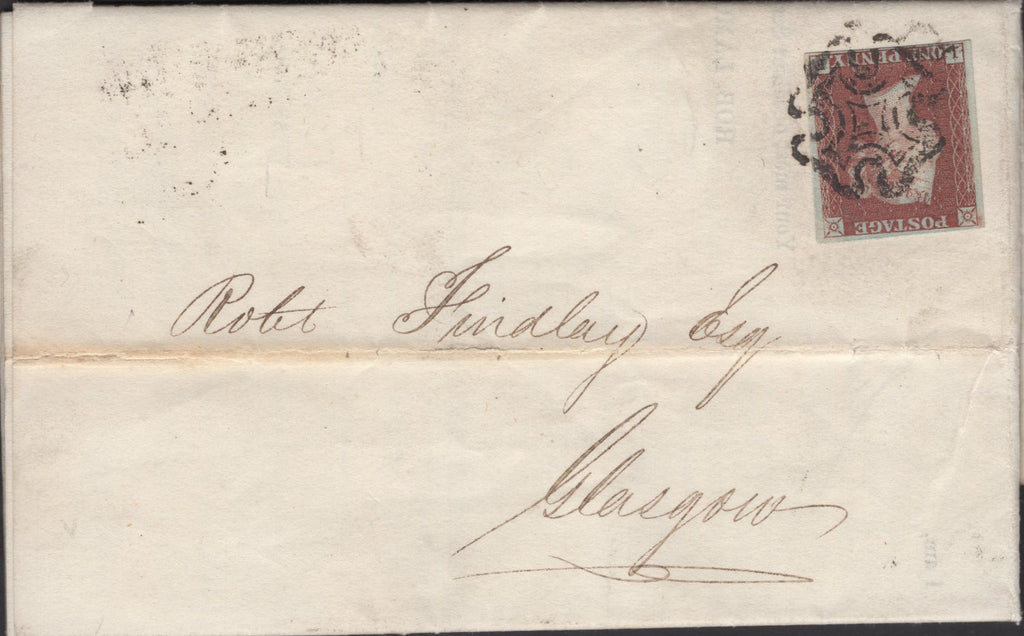 POSTAGE
ONE PENNY
Robt Findlay Esq
Glasgow